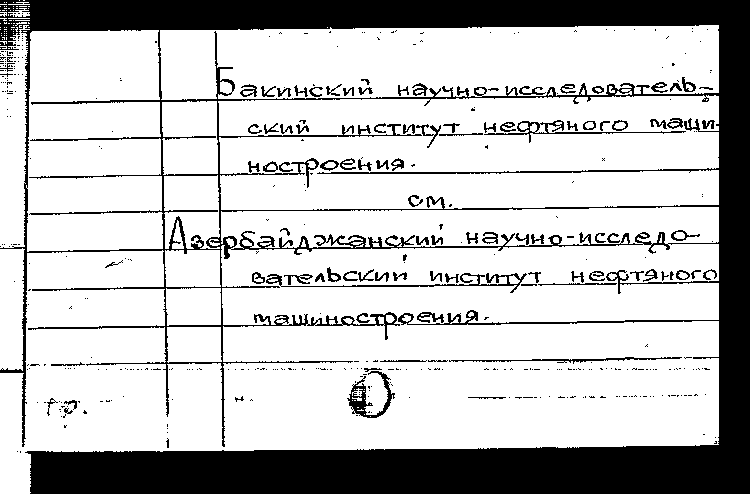 Бакинский научно-исследователь-
ский институт нефтяного маши-
ностроения.
см.
Азербайджанский научно-исследо-
вательский институт нефтяного
машиностроения.